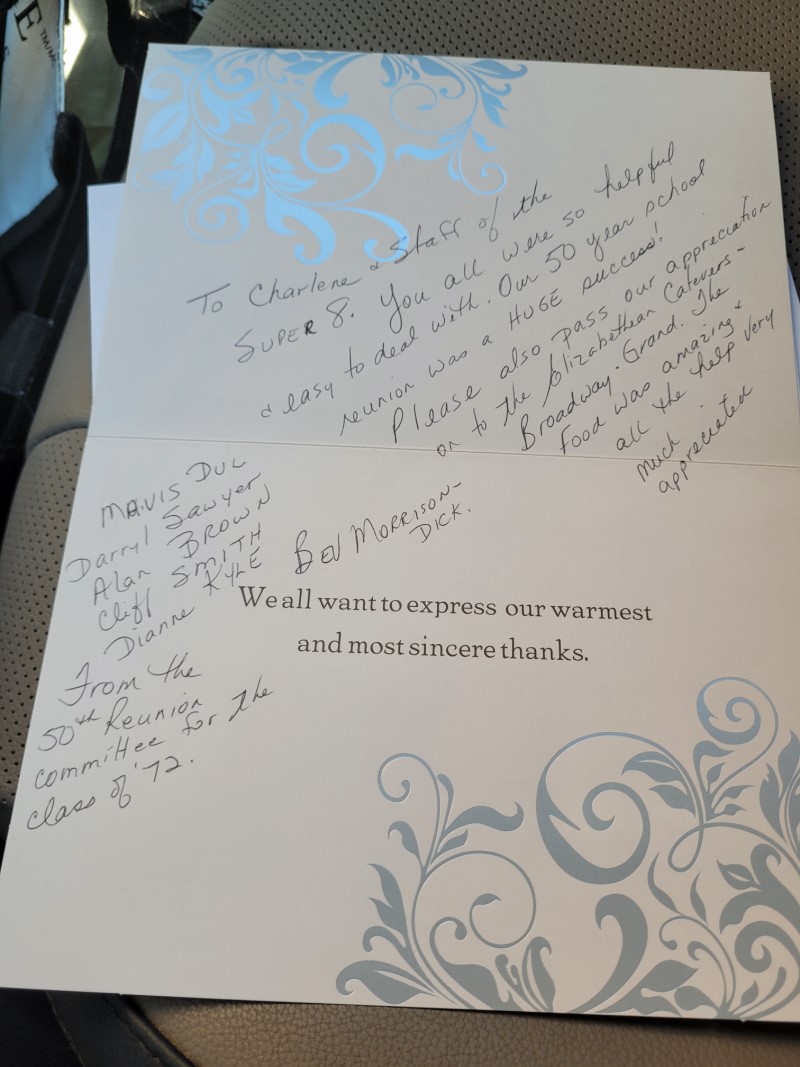 To Charlene & Staff of the
SUPER 8. You all were so helpful
& easy to deal with. Our 50 year school
reunion was a HUGE success!
Please also pass our appreciation
on to the Elizabethean Caterers -
Broadway - Grand. The
Food was amazing &
all the help very
much
appreciated
MAVIS DUL
Darryl Sawyer
Alan BROWN
Cliff SMITH
Dianne KYLE
BEV MORRISON-
DICK.
We all want to express our warmest
and most sincere thanks.
From the
50th Reunion
committee for the
class of '72.